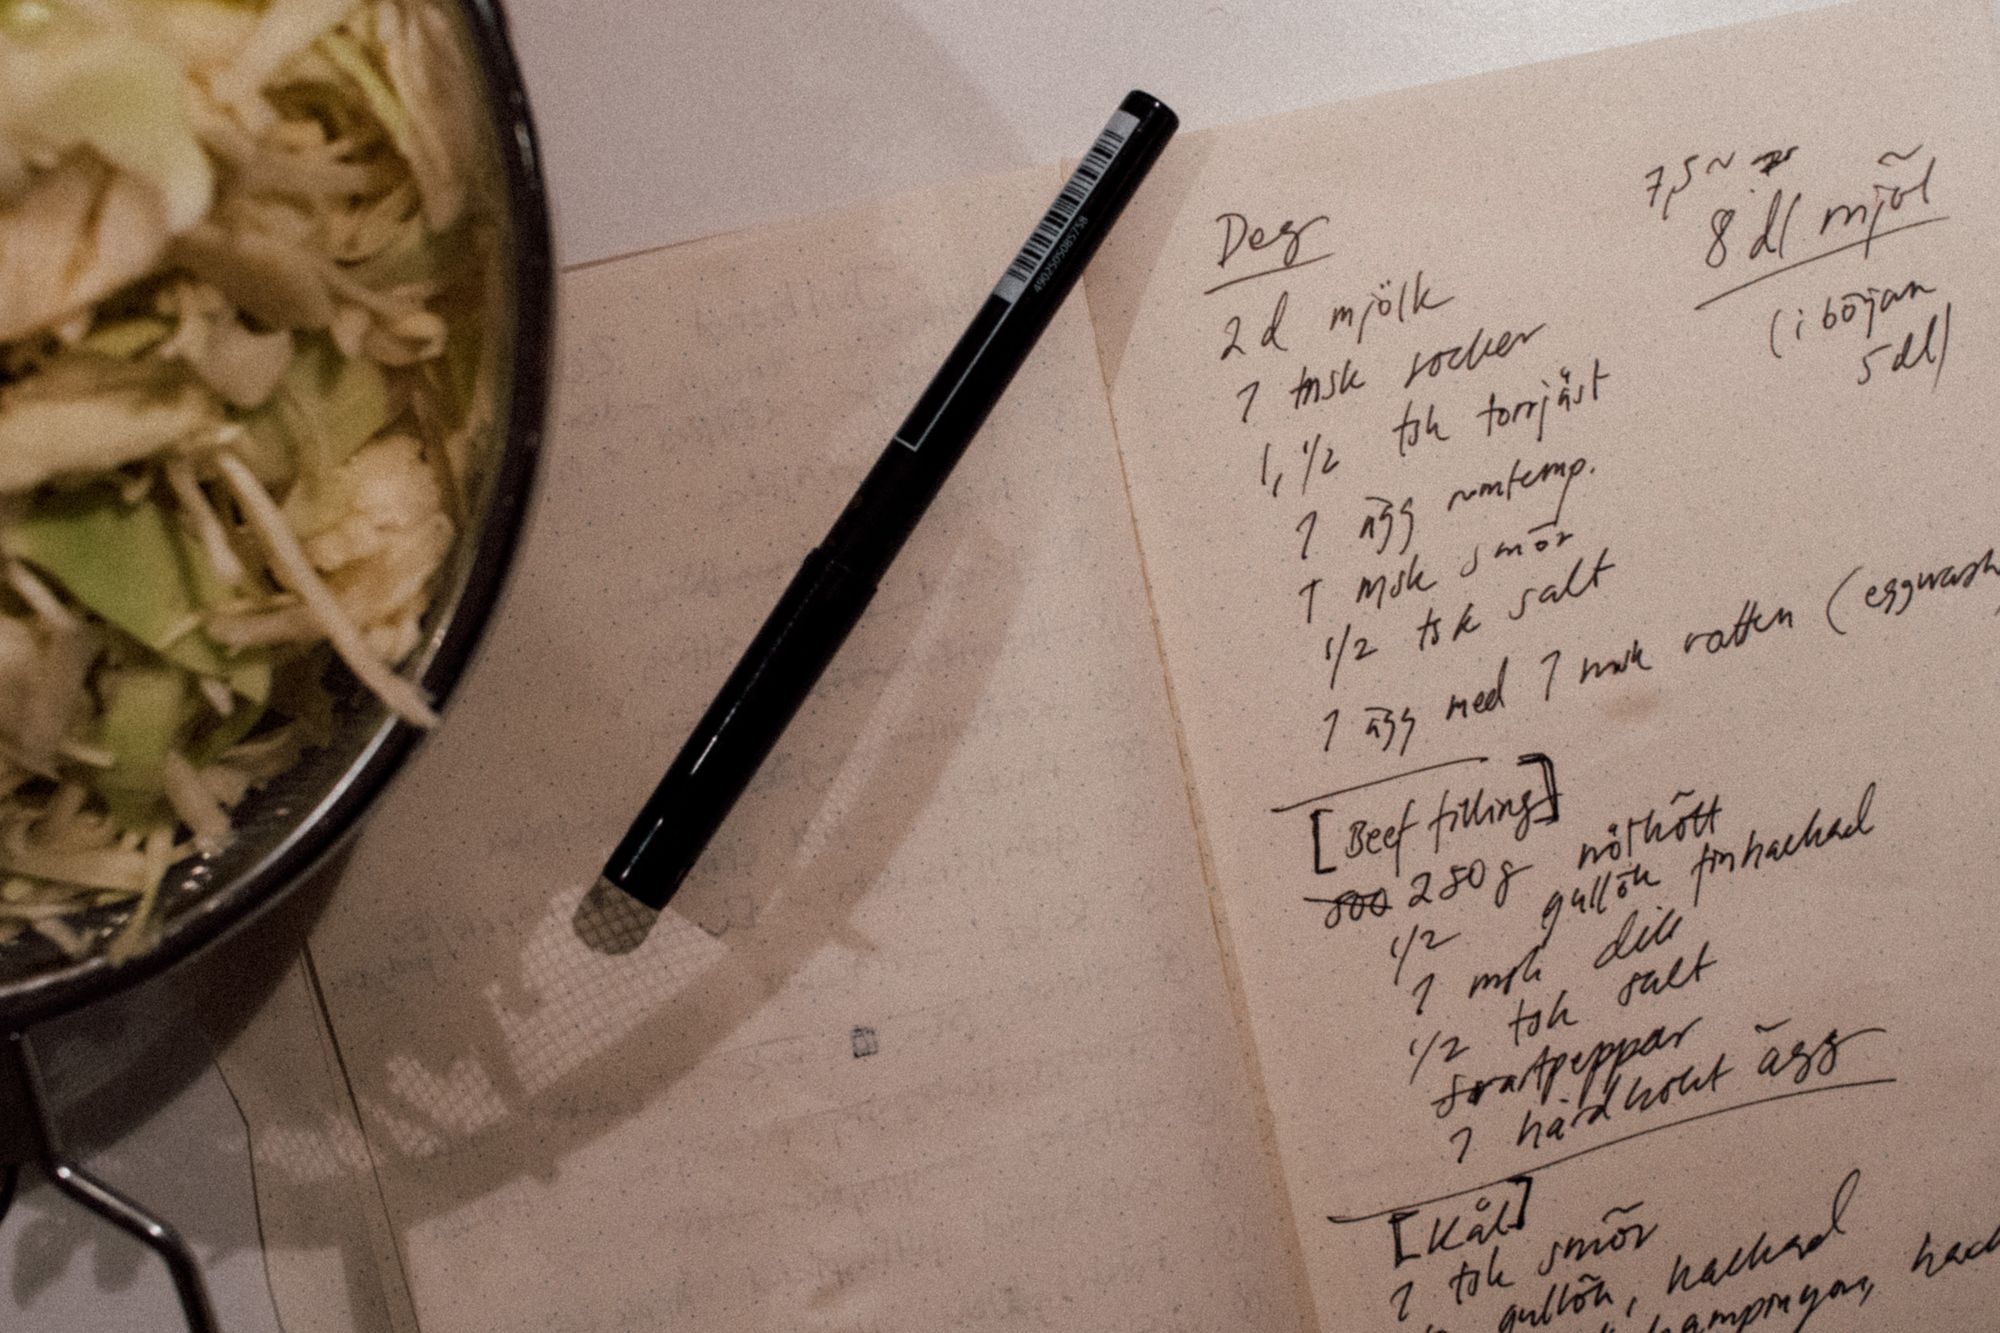 4902505085758
Deg
2 d mjölk
1 msk socker
1, 1/2 tsk torrjäst
1 ägg rumtemp.
1 msk smör
1/2 tsk salt
1 ägg med 1 msk vatten (eggwash
7,5 ~
8 dl mjöl
(i början
5 dl)
[Beef filling]
500 250 g nötkött
1/2 gullök finhackad
1 msk dill
1/2 tsk salt
svartpeppar
1 hårdkokt ägg
[Kål]
1 tsk smör
gullök, hackad